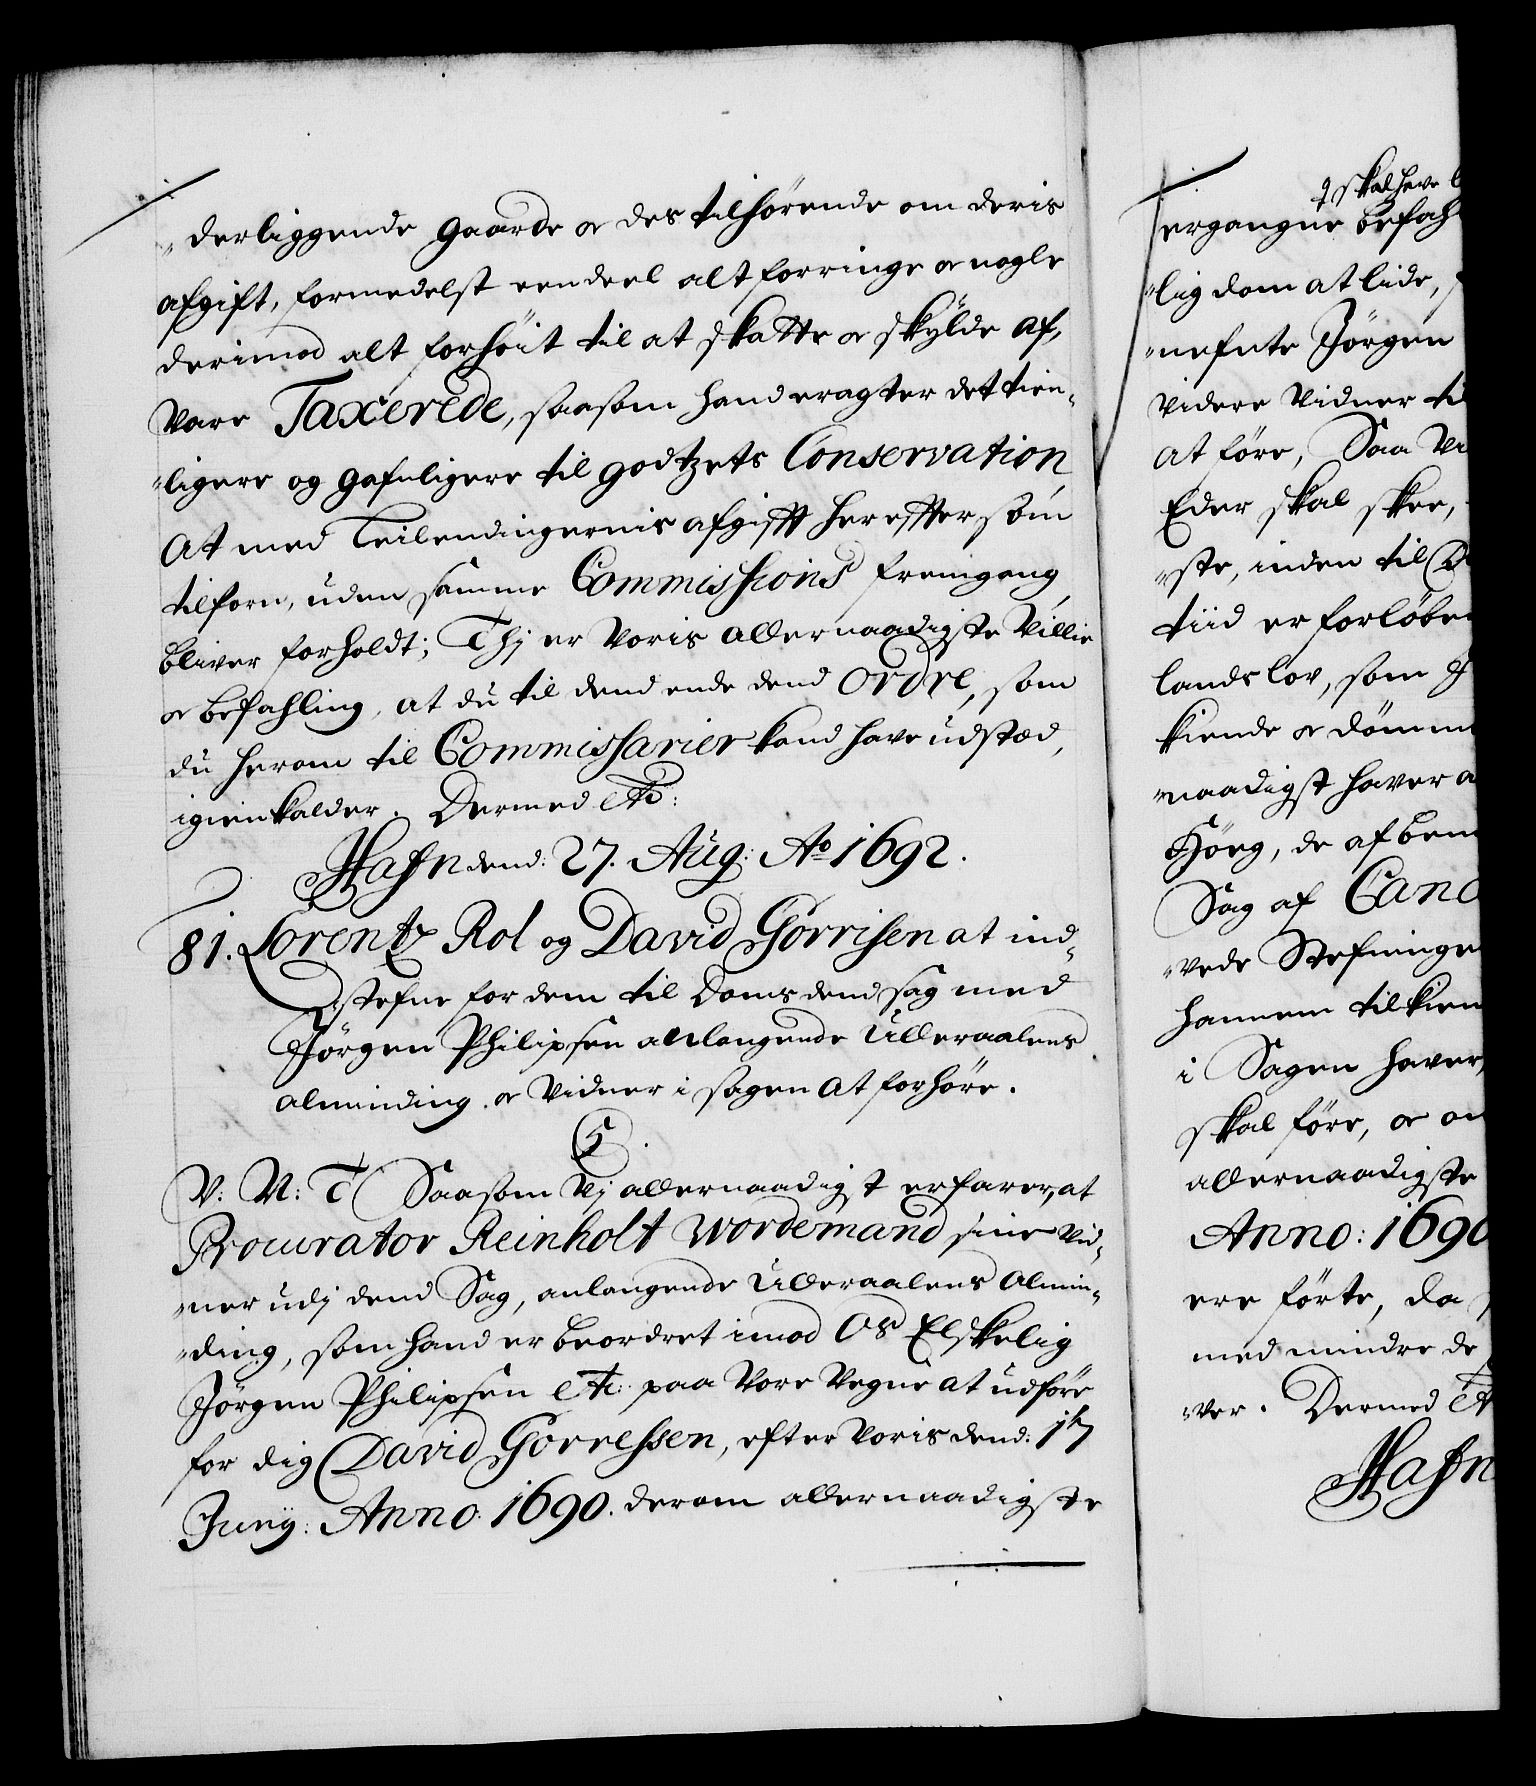 "derliggende gaarde og des tilhørende om deris
afgift, formedelst een deel alt forringe og nogle
derimod alt forhöit til at skatte og skÿlde af,
vare Taxerede, saasom hand eragter det tien-
"ligere og gafnligere til godtzets Conservation,
At med Leilendingernis afgifft her effter som
tilforn, uden samme Commissions fremgang,
bliver forholdt; Thj er Voris allernaadigste Villie
og befahling, at du til dend ende dend Ordre, som
du herom til Commissarier kand have udstæd,
igienkalder. Dermed etc:
Hafn dend: 27. Aug: Ao 1692.
81. Lorentz Rol og David Gørrisen at ind-
stefne for dem til Doms dend sag med
Jørgen Philipsen anlangende Ulleraalens
alminding, og Vidner i sagen at forhöre.
C5.
V: N: T Saasom Vj allernaadigst erfarer, at
Procurator Reinholt Wordemand sine Vid-
"ner udj dend Sag, anlangende Ulleraalens Almin-
"ding, som hand er beordret imod Os Elskelig
Jørgen Philipsen etc: paa Vore Vegne at udføre
for dig David Gørressen, efter Voris dend: 17
Junij: Anno: 1690. derom allernaadigste
skal have
ergangne befah
"lig dom at lide,
"nefnte Jørgen
videre Vidner ti
at före, Saa Vi
Eder skal skee,
"ste, inden til
tiid er forløben
lands lov, som
kiende og dömme
"naadigst haver a
Hörg, de af bem
Sag af Canc
"vede Stefninge
hannem tilkien
i Sagen haver,
skal före, og on
allernaadigste
Anno: 1690
ere förte, da
med mindre de
"ver. Dermed etc
Hafn